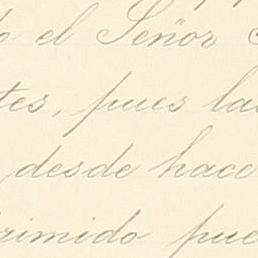 o el Señor
tes, pues las
desde hace
rimido pue